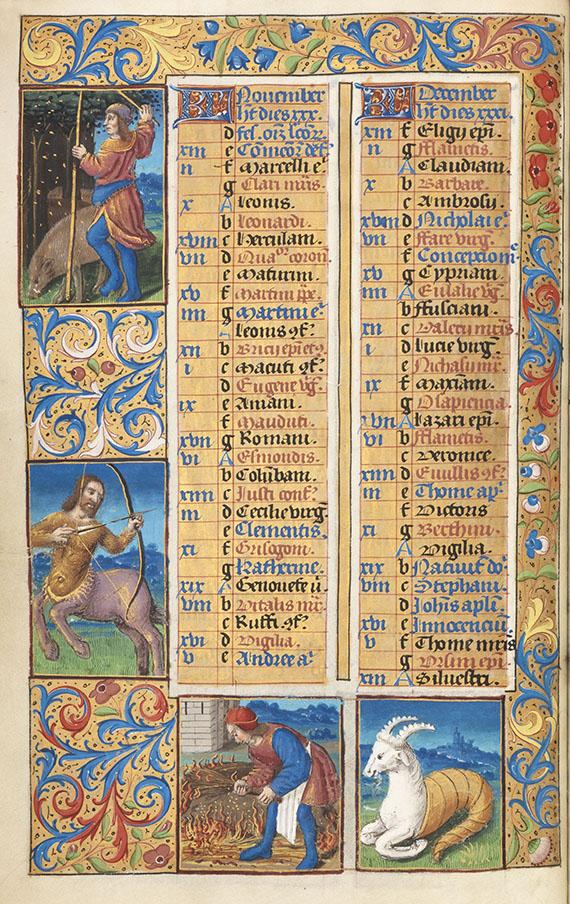 KL November
ht dies xxx.
d
xiii e
ii f Marcelli e
g Clari
x A Leonis.
b Leonardi.
xviii c Herculani.
vii d Quatuor coron
e Maturini.
xv f Martini
iiii g Martini e
Leonis
xii b Bricii epi
i c Macuti
d Eugene vg
ix e Amani.
f Mauditi.
xvii g Romani.
vi A Esmondis.
b Columbani.
xiiii c Justi conf
iii d Cecilie virg
e Clementis.
xi f Grisogoni.
g Katherine.
xix A Genovefe v
viii b Vitalis mr
c Ruffi
xvi d Vigilia.
v e Andree a
KL December
ht dies xxxi.
xiii f Eligii epi.
ii g
A Claudiani.
x b Barbare.
c Ambrosii.
xviii d Nicholai e
vii e virg.
f Conceptio
xv g Cypriani.
iiii A Eulalie vg
b Fusciani.
xii c Valerii
i d Lucie virg
e Nichasii mr
ix f Maxiani.
g Osapiencia.
xvii A Lazari epi.
vi b
c Veronice.
xiiii d
iii e Thome ap
f Victoris
xi g
A Vigilia.
xix b Nativit do
viii c Stephani.
d Johis aplī.
xvi e Innocenciu
v f Thome
g Ursini epi
xiii A Silvestri.